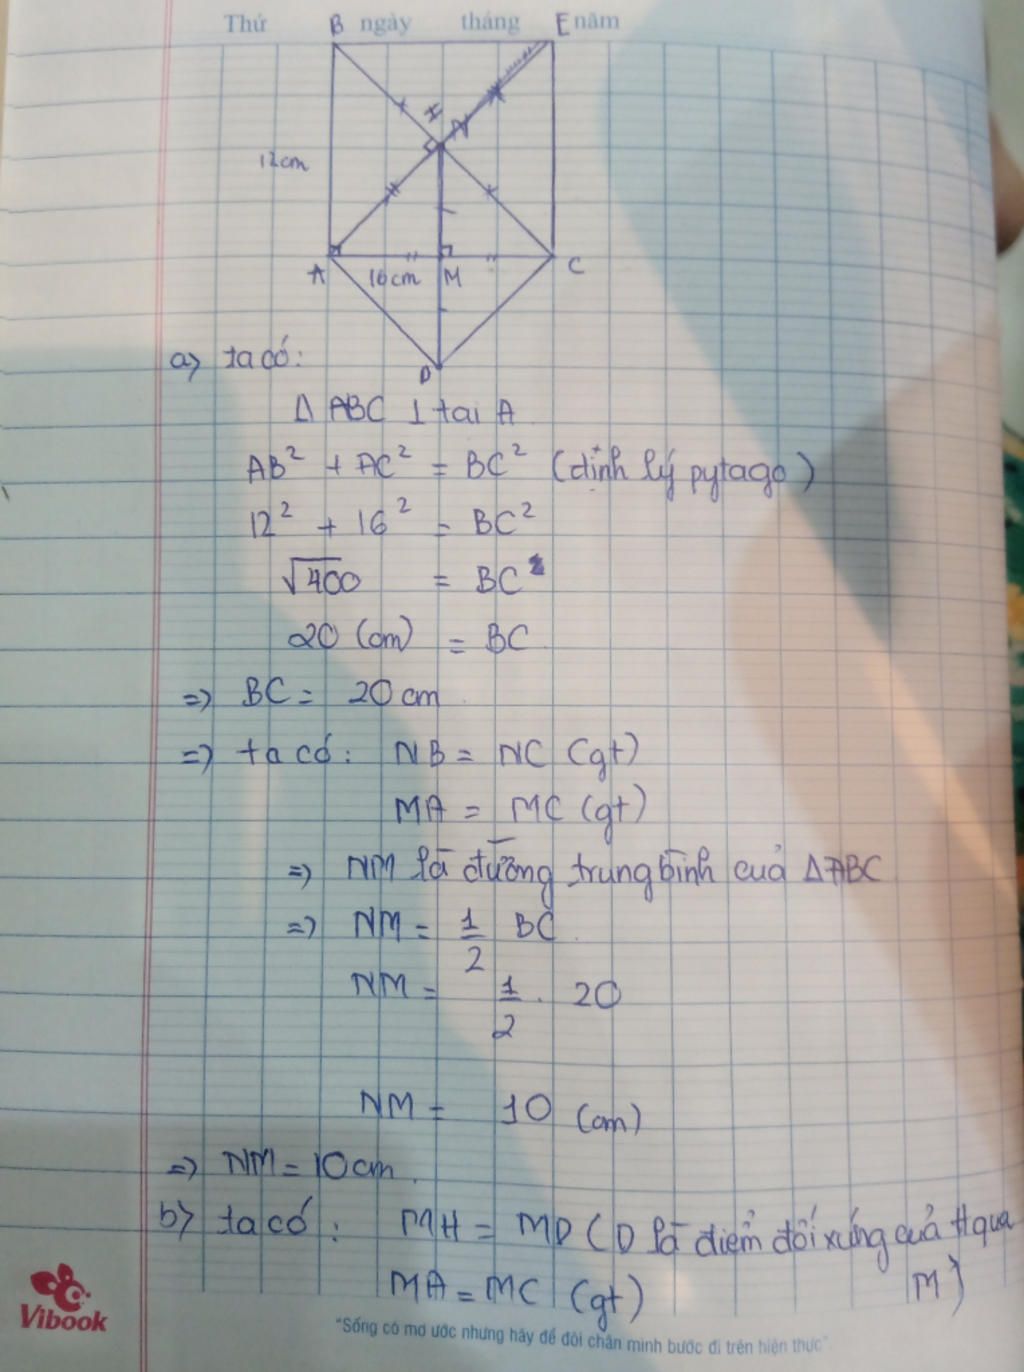 Thứ B ngày tháng E năm
H N
12cm
A 16cm M C
D
a) ta có:
Δ ABC ⊥ tại A
AB² + AC² = BC² (định lý pytago)
12² + 16² = BC²
√400 = BC
20 (cm) = BC
=> BC = 20 cm
=> ta có: NB = NC (gt)
MA = MC (gt)
=> NM là đường trung bình cuả ΔABC
=> NM = 1/2 BC
NM = 1/2 . 20
NM = 10 (cm)
=> NM = 10cm.
b) ta có: MH = MD (D là điểm đối xứng cuả H qua
MA = MC (gt) M)
Vibook
"Sống có mơ ước nhưng hãy để đôi chân mình bước đi trên hiện thực"